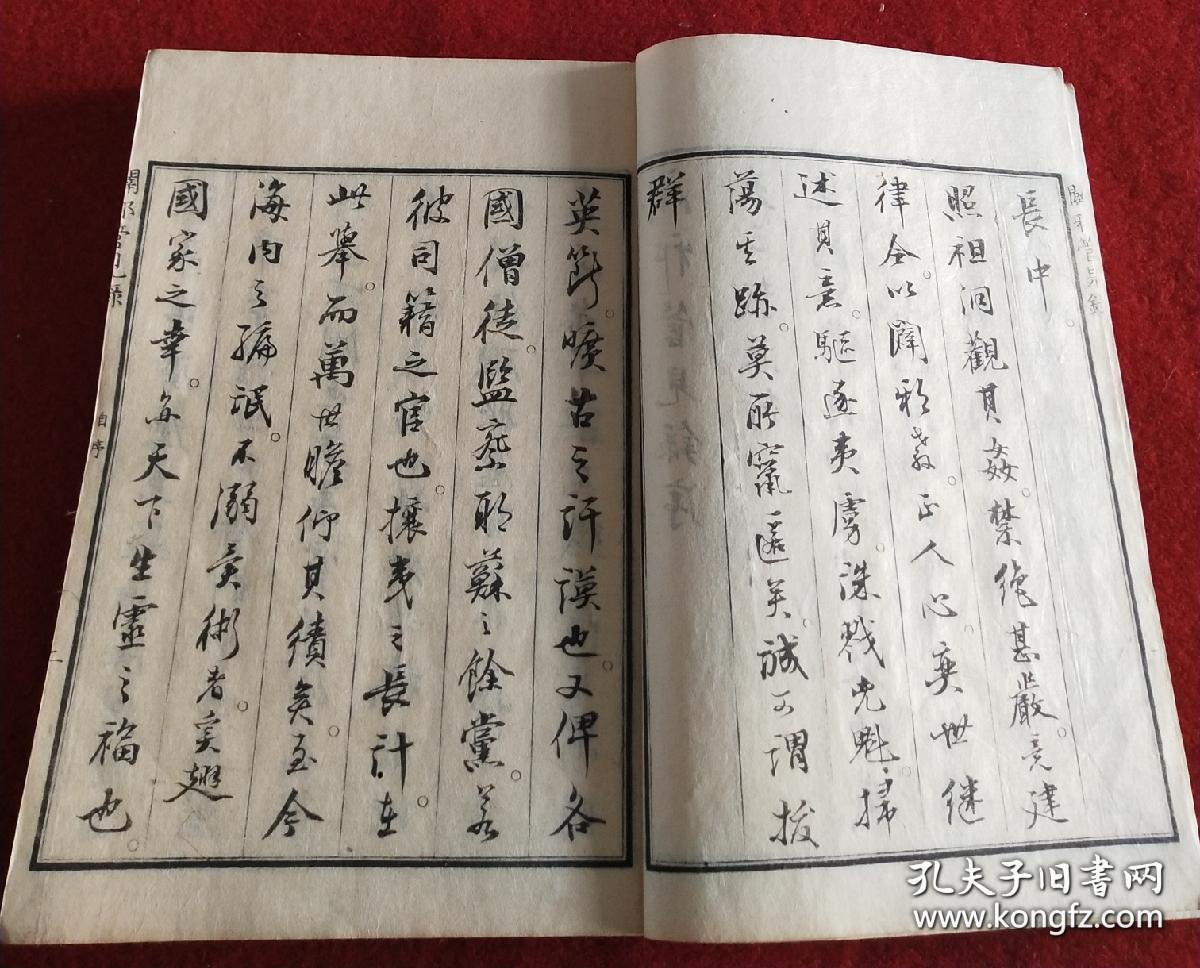 長中。
照祖洞觀其姦。禁絶甚嚴。竟建
律令。以闢邪教。正人心。奕世継
述其意。驅逐夷虜。誅戮兇魁。掃
蕩其跡。莫所竄匿矣。誠可謂拔
群
英籌曠古之訏謨也。又俾各
國僧徒監察耶蘇之餘黨。若
彼司籍之官也。攘夷之長計在
此擧。而萬世瞻仰其績矣。至今
海内之
氓。不溺
術者。奚翅
國家之幸。
天下生靈之福也。
闢邪管見錄
自序
二
闢邪管見錄
孔夫子旧书网
www.kongfz.com